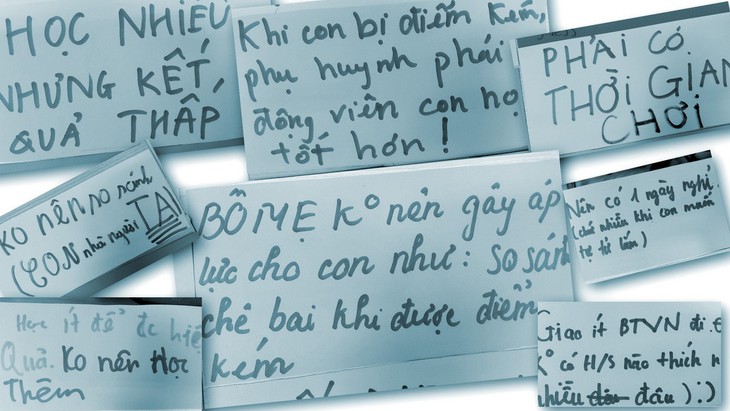 HỌC NHIỀU
NHƯNG KẾT
QUẢ THẤP
Khi con bị điểm kém,
phụ huynh phải
động viên con họ
tốt hơn !
PHẢI CÓ
THỜI GIAN
CHƠI
KO NÊN so sánh
(CON nhà người TA)
BỐ MẸ K° nên gây áp
lực cho con như: so sán
chê bai khi được điểm
kém
Nên có 1 ngày nghỉ
(chứ nhiều khi con muốn
tự tử lắm)
Học ít để đc hiệ
Quả. Ko nên Học
Thêm
Giao ít BTVN đi
K° có H/S nào thích
nhiều đâu ) :)